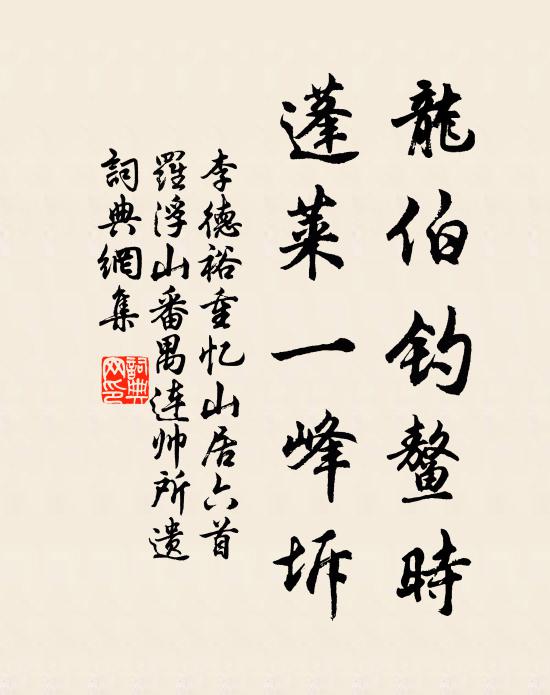 龍伯釣鰲時
蓬萊一峰坼
李德裕重忆山居六首
羅浮山番禺连帅所遗
詞典網集
詞典
网印